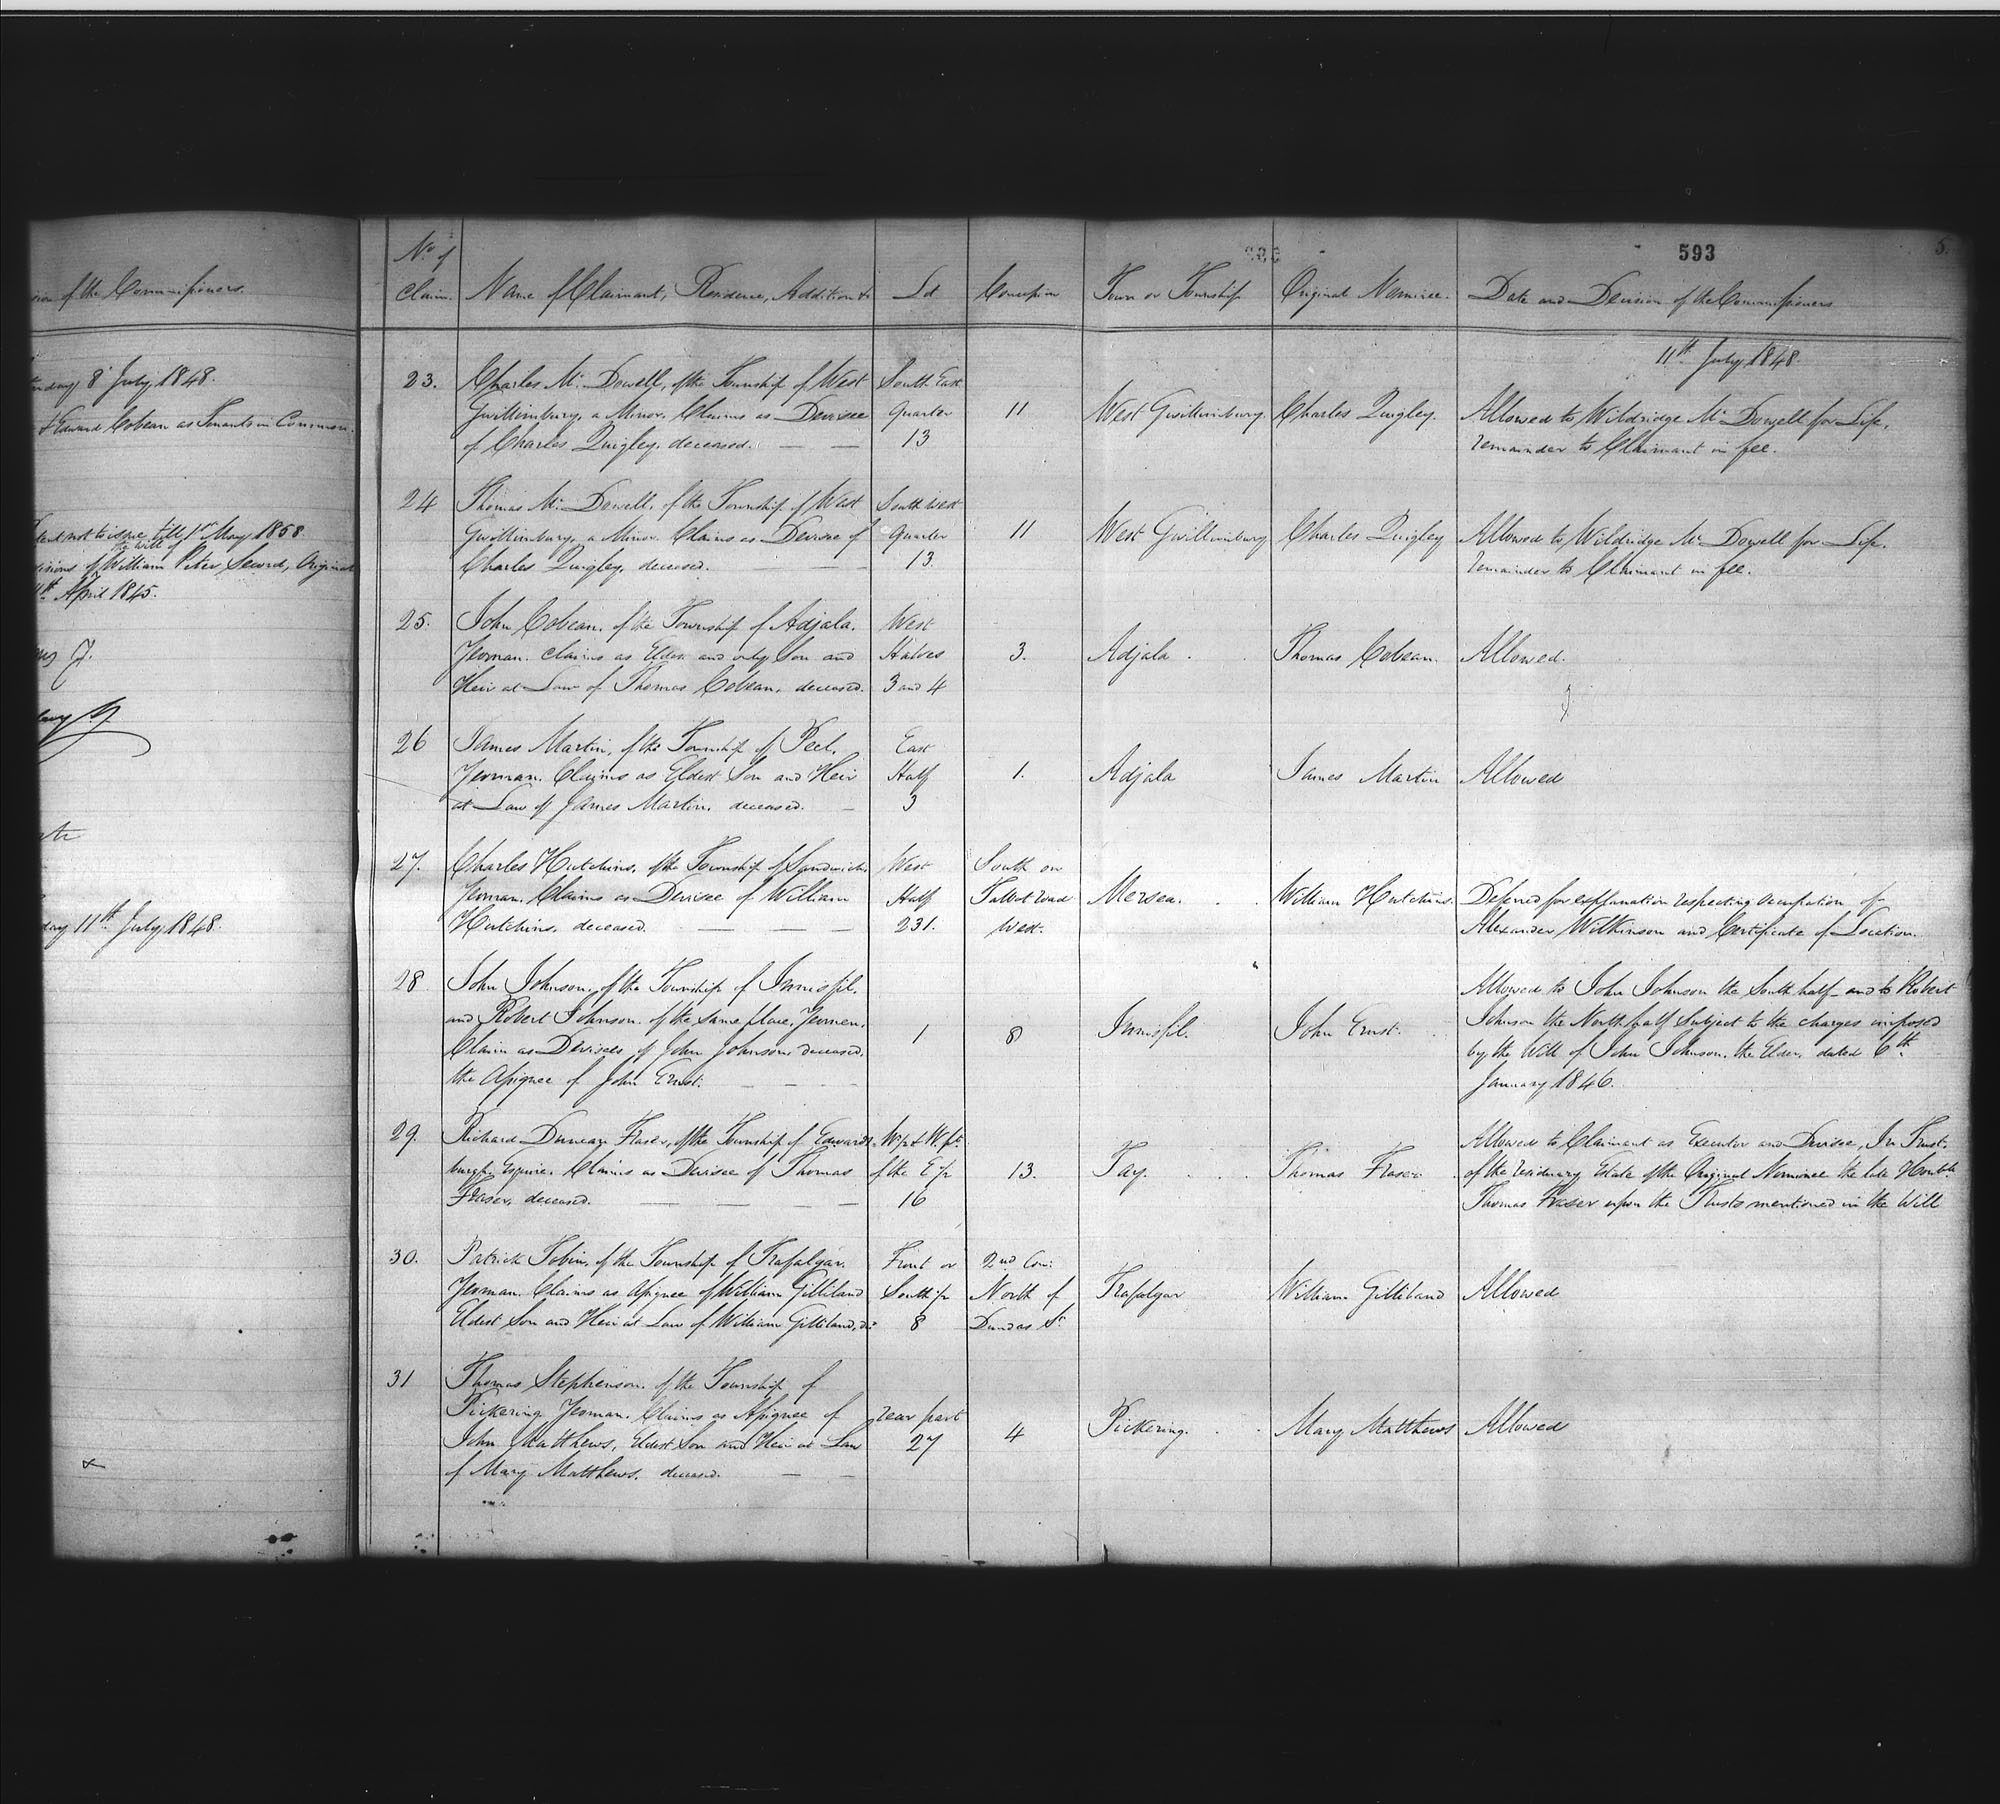 sion of the Commissioners.
8 July 1848.
& Edward Cobean as Tenants in Common.
not to issue till 1st May 1858
the will of
visions of William Peter Seword, Original
11th April 1845.
11th July 1848.
593
5.
No. of
Claim.
Name of Claimant, Residence, Addition &c
Lot
Concession
Town or Township
Original Nominee.
Date and Decision of the Commissioners
11th July 1848.
23.
Charles Mc Dowell, of the Township of West
Gwillimbury, a Minor. Claims as Devisee
of Charles Quigley, deceased.
South East
Quarter
13
11
West Gwillimbury.
Charles Quigley.
Allowed to Wildridge Mc Dowell for Life,
remainder to Claimant in fee.
24
Thomas Mc Dowell, of the Township of West
Gwillimbury, a Minor. Claims as Devisee of
Charles Quigley, deceased.
South West
Quarter
13.
11
West Gwillimbury
Charles Quigley
Allowed to Wildridge Mc Dowell for Life.
remainder to Claimant in fee.
25.
John Cobean, of the Township of Adjala.
Yeoman. Claims as Eldest and only Son and
Heir at Law of Thomas Cobean, deceased.
West
Halves
3 and 4
3.
Adjala
Thomas Cobean.
Allowed.
26
James Martin, of the Township of Peel,
Yeoman. Claims as Eldest Son and Heir
at Law of James Martin, deceased.
East
Half
3
1.
Adjala
James Martin
Allowed
27.
Charles Hutchins, of the Township of Sandwich,
Yeoman. Claims as Devisee of William
Hutchins, deceased.
West
Half
231.
South on
Talbot road
West.
Mersea.
William Hutchins.
Deferred for explanation respecting occupation of
Alexander Wilkinson and Certificate of Location.
28
John Johnson, of the Township of Innisfil.
and Robert Johnson, of the same place, Yeomen.
Claim as Devisees of John Johnson deceased.
the Assignee of John Ernst.
1
8
Innisfil.
John Ernst.
Allowed to John Johnson the South half – and to Robert
Johnson the North half Subject to the charges imposed
by the Will of John Johnson, the Elder, dated 6th
January 1846.
29.
Richard Duncan Fraser, of the Township of Edwards-
burgh, Esquire. Claims as Devisee of Thomas
Fraser, deceased.
W. ½ & W. pt.
of the E ½
16
13.
Tay.
Thomas Fraser
Allowed to Claimant as Executor and Devisee, In Trust
of the residuary Estate of the Original Nominee the late Honble.
Thomas Fraser upon the Trusts mentioned in the Will
30.
Patrick Tobin, of the Township of Trafalgar.
Yeoman. Claims as Assignee of William Gilliland
Eldest Son and Heir at Law of William Gilliland, de
Front or
South ½
8
2nd Con:
North of
Dundas St.
Trafalgar
William Gilliland
Allowed
31
Thomas Stephenson, of the Township of
Pickering Yeoman. Claims as Assignee of
John Matthews, Eldest Son and Heir at Law
of Mary Matthews, deceased.
rear part
27
4
Pickering.
Mary Matthews
Allowed